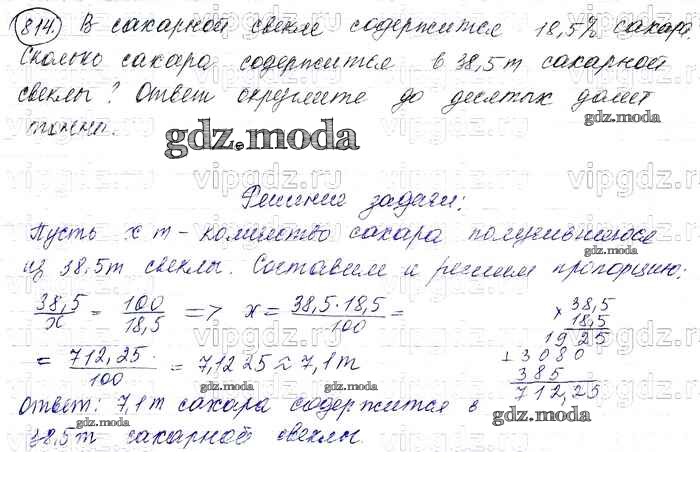 814. В сахарной свекле содержится 18,5% сахара.
Сколько сахара содержится в 38,5 т сахарной
свеклы? Ответ округлите до десятых долей
тонны.
gdz.moda
gdz.moda
Решение задачи:
Пусть x т - количество сахара получившегося
из 38.5т свеклы. Составим и решим пропорцию:
38,5/x = 100/18,5 => x = 38,5·18,5/100 =
× 38,5
18,5
1925
+ 3080
385
712,25
= 712,25/100 = 7,1225 ≈ 7,1т
gdz.moda
gdz.moda
gdz.moda
Ответ: 7,1т сахара содержится в
38,5т сахарной свеклы.
gdz.moda
vipgdz.ru